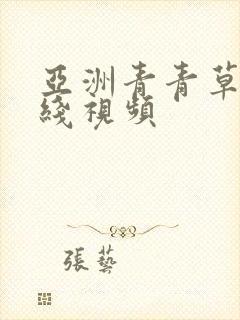 亞洲青青草
綫視頻
張藝